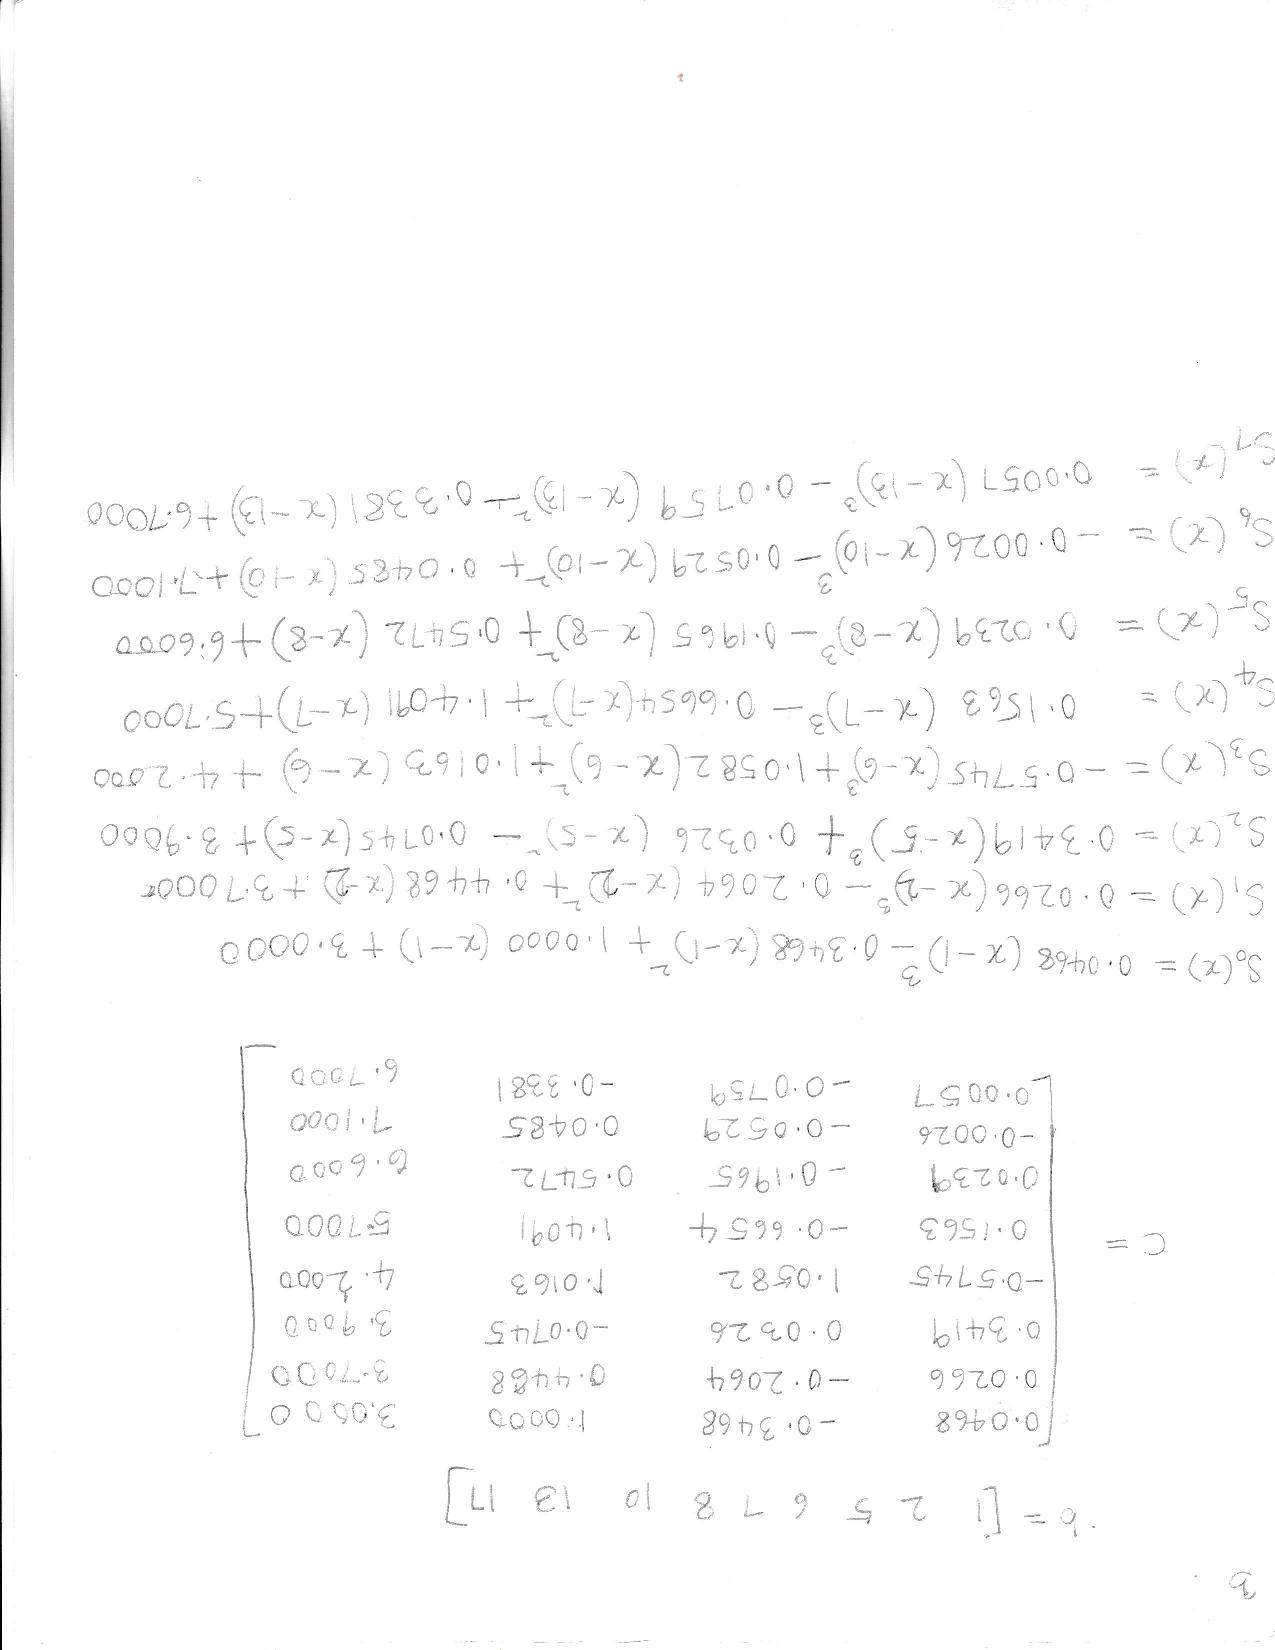 3
b = [1 2 5 6 7 8 10 13 17]
C = [0.0468 -0.3468 1.0000 3.0000
0.0266 -0.2064 0.4468 3.7000
0.3419 0.0326 -0.0745 3.9000
-0.5745 1.0582 1.0163 4.2000
0.1563 -0.6654 1.4091 5.7000
0.0239 -0.1965 0.5472 6.6000
-0.0026 -0.0529 0.0485 7.1000
0.0057 -0.0759 -0.3381 6.7000]
S₀(x) = 0.0468 (x-1)³ - 0.3468 (x-1)² + 1.0000 (x-1) + 3.0000
S₁(x) = 0.0266 (x-2)³ - 0.2064 (x-2)² + 0.4468 (x-2) + 3.7000
S₂(x) = 0.3419 (x-5)³ + 0.0326 (x-5)² - 0.0745 (x-5) + 3.9000
S₃(x) = -0.5745 (x-6)³ + 1.0582 (x-6)² + 1.0163 (x-6) + 4.2000
S₄(x) = 0.1563 (x-7)³ - 0.6654 (x-7)² + 1.4091 (x-7) + 5.7000
S₅(x) = 0.0239 (x-8)³ - 0.1965 (x-8)² + 0.5472 (x-8) + 6.6000
S₆(x) = -0.0026 (x-10)³ - 0.0529 (x-10)² + 0.0485 (x-10) + 7.1000
S₇(x) = 0.0057 (x-13)³ - 0.0759 (x-13)² - 0.3381 (x-13) + 6.7000